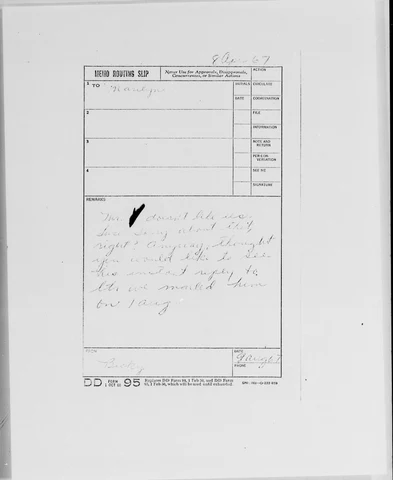 9 Aug 67
MEMO ROUTING SLIP
Never Use for Approvals, Disapprovals,
Concurrences, or Similar Actions
ACTION
1 TO
INITIALS
CIRCULATE
DATE
COORDINATION
2
FILE
INFORMATION
3
NOTE AND
RETURN
PER CON-
VERSATION
4
SEE ME
SIGNATURE
REMARKS
Mr. doesn't like us.
about that,
right? Anyway, thought
you would like to see
his instant reply to
ltr we mailed him
on 1 Aug.
FROM
Becky
DATE
9 Aug 67
PHONE
DD FORM 95
1 OCT 60
Replaces DD Form 94, 1 Feb 50, and DD Form
95, 1 Feb 50, which will be used until exhausted.